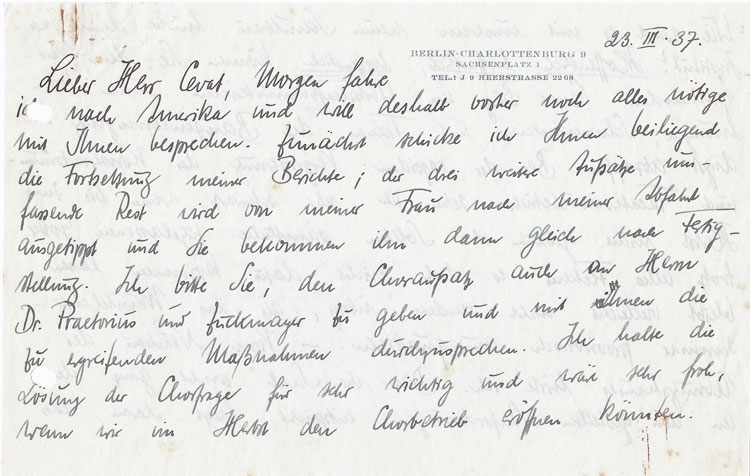 23. III. 37.
BERLIN-CHARLOTTENBURG 9
SACHSENPLATZ 1
TEL: J 9 HEERSTRASSE 2268
Lieber Herr Cevat, Morgen fahre
ich nach Amerika und will deshalb vorher noch alles nötige
mit Ihnen besprechen. Zunächst schicke ich Ihnen beiliegend
die Fortsetzung meiner Berichte; der drei weitere Aufsätze um-
fassende Rest wird von meiner Frau nach meiner Abfahrt
ausgetippt und Sie bekommen ihn dann gleich nach Fertig-
stellung. Ich bitte Sie, den Choraufsatz auch an Herrn
Dr. Praetorius und Zuckmayer zu geben und mit ihnen die
zu ergreifenden Maßnahmen durchzusprechen. Ich halte die
Lösung der Chorfrage für sehr wichtig und wär sehr froh,
wenn wir im Herbst den Chorbetrieb eröffnen könnten.